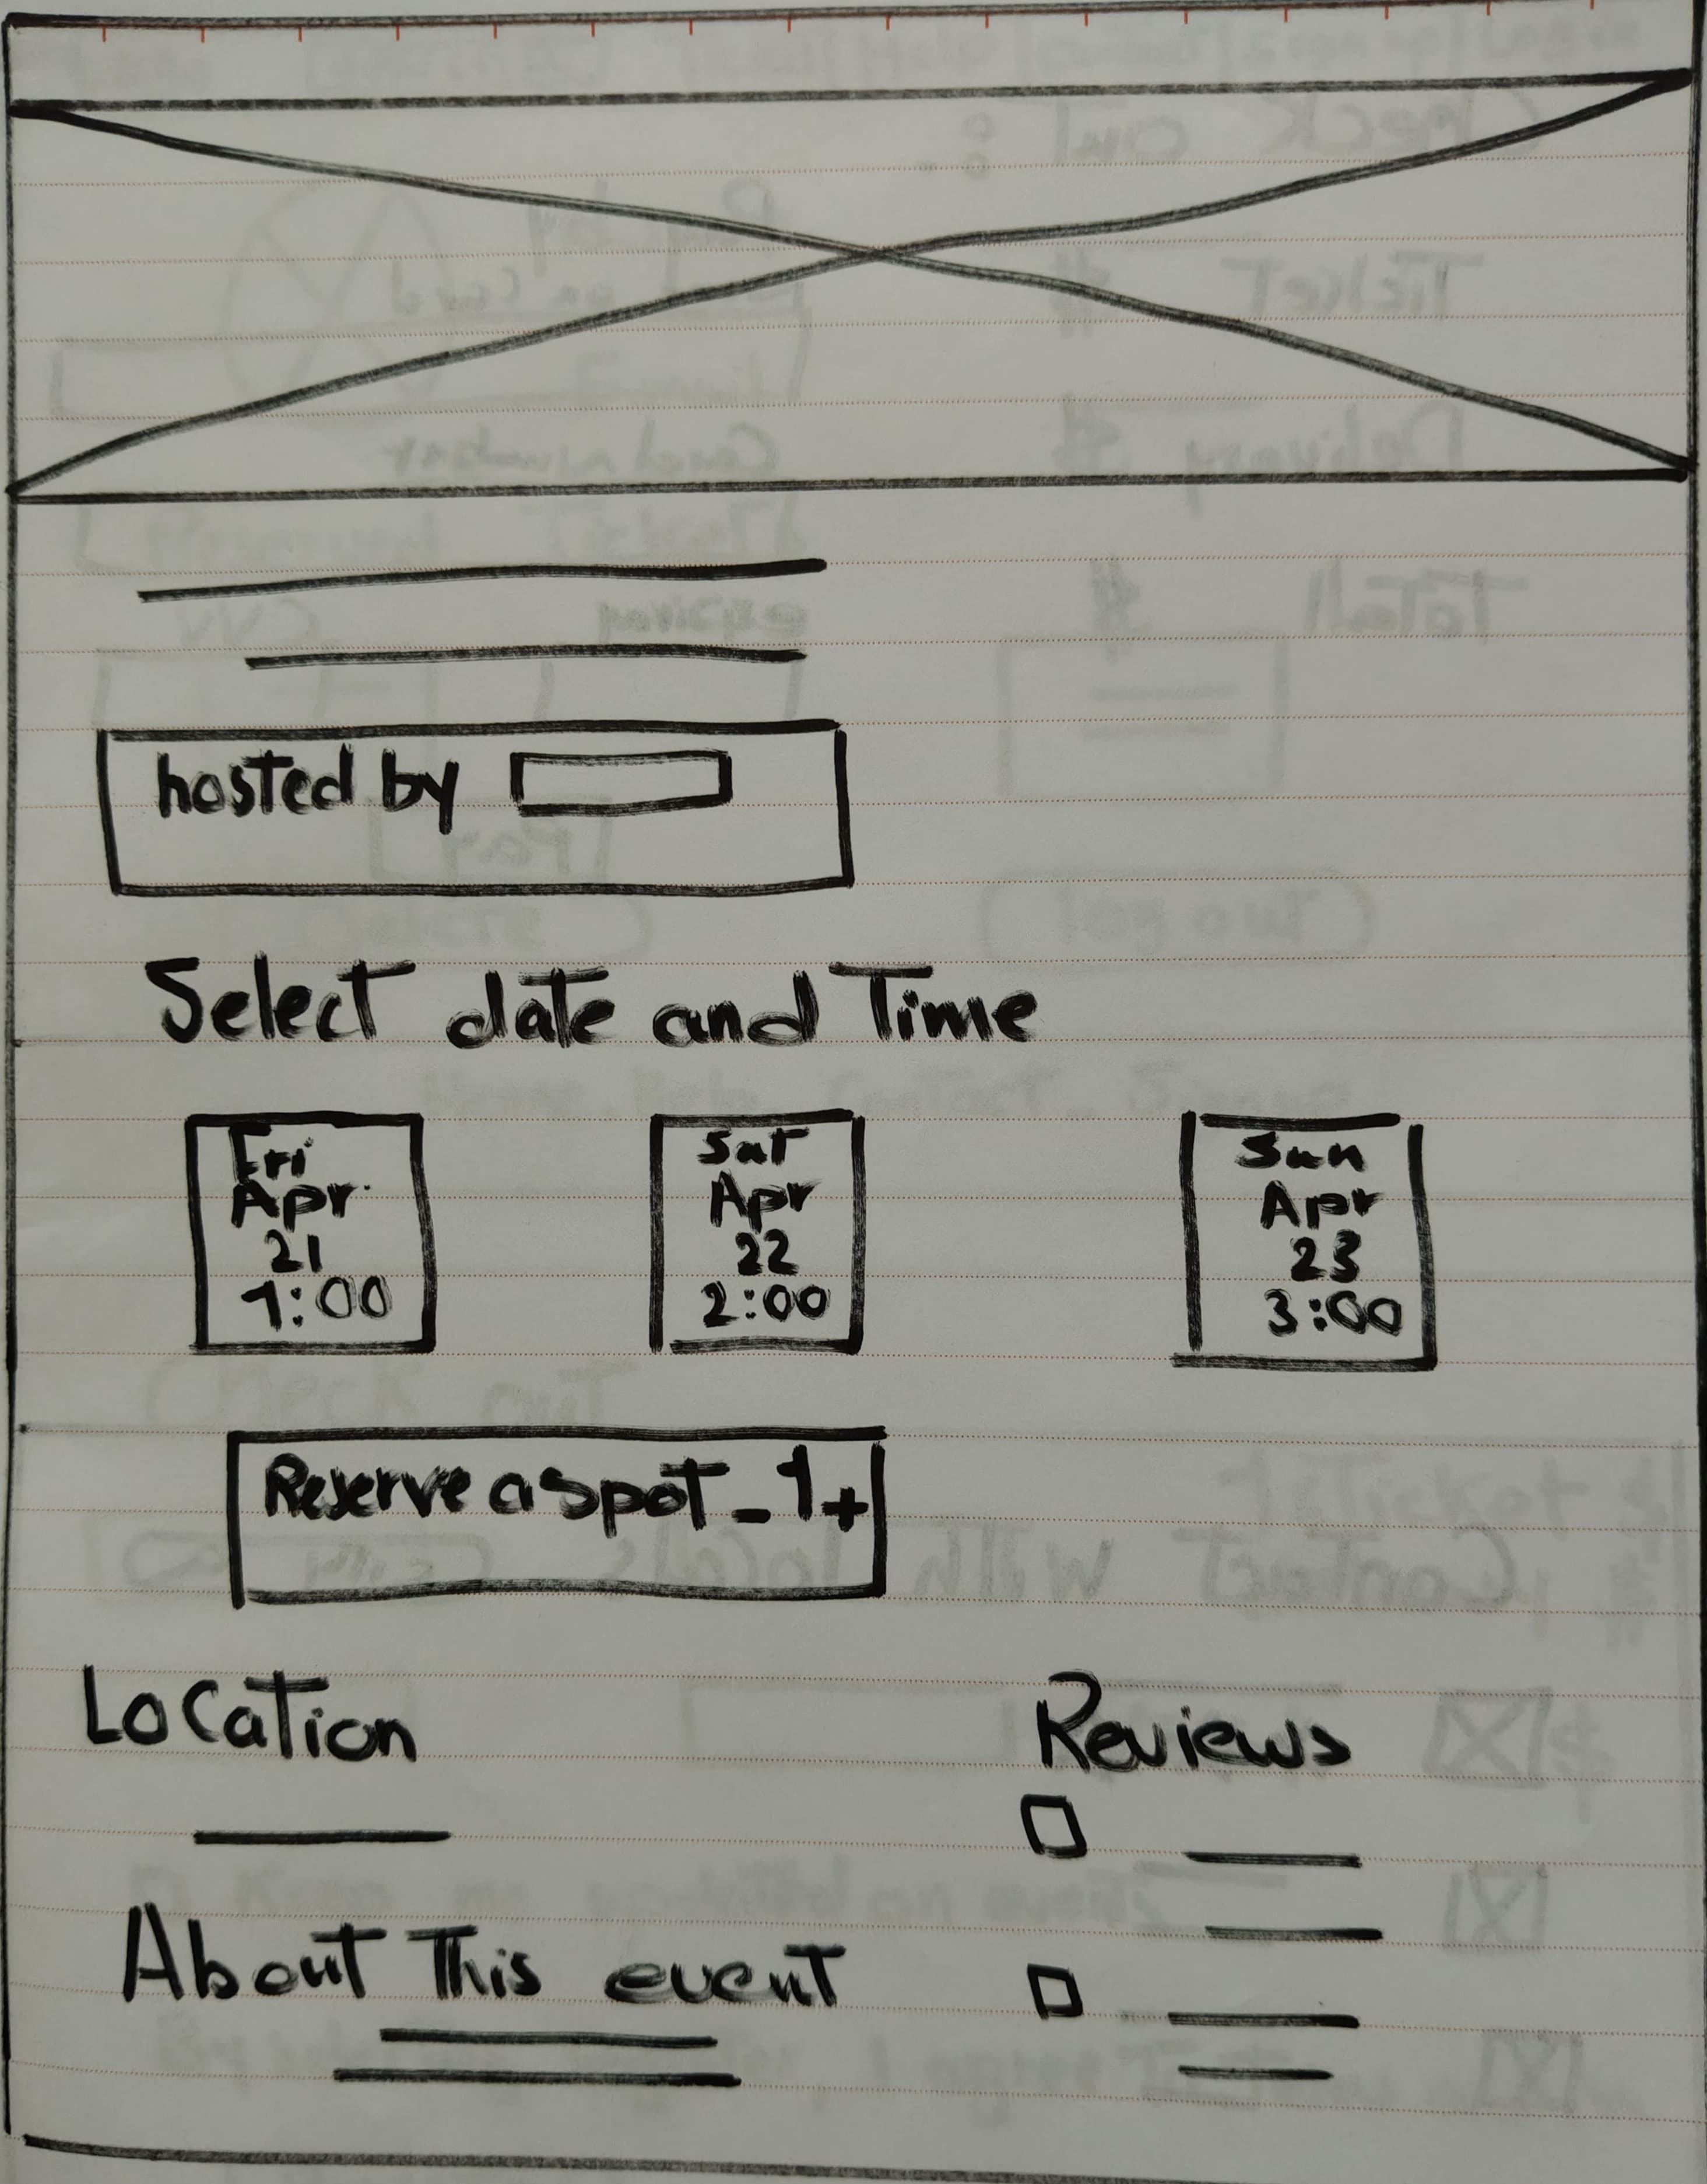 hosted by
Select date and Time
Fri
Apr
21
1:00
Sat
Apr
22
2:00
Sun
Apr
23
3:00
Reserve a spot - 1 +
Location
Reviews
About This event